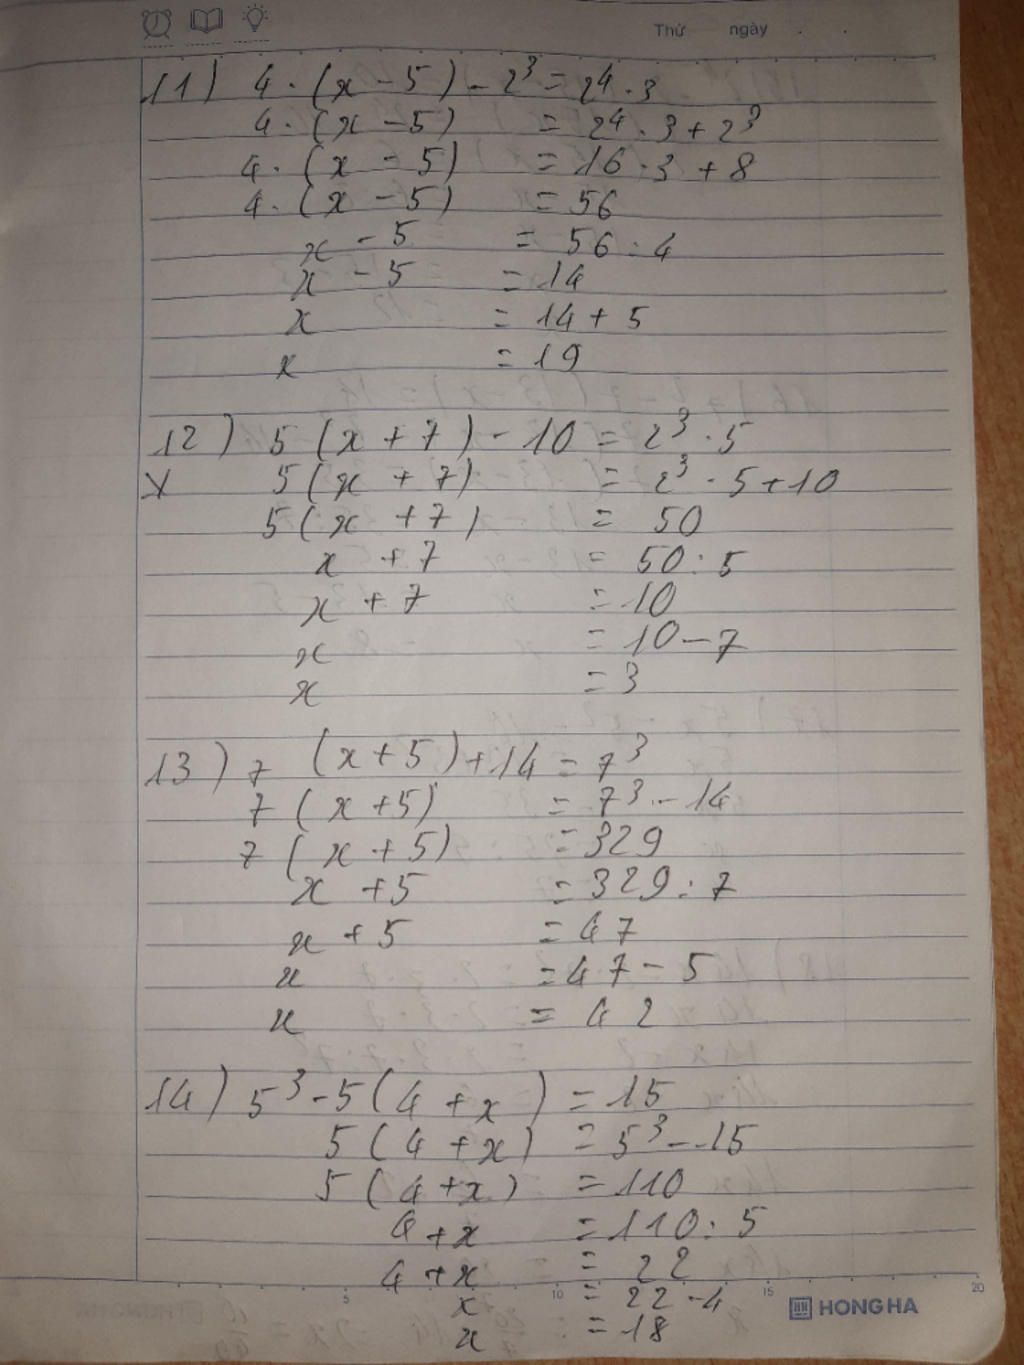 Thứ ngày . .
11) 4 . (x - 5) - 2³ = 2⁴ . 3
4 . (x - 5) = 2⁴ . 3 + 2³
4 . (x - 5) = 16 . 3 + 8
4 . (x - 5) = 56
x - 5 = 56 : 4
x - 5 = 14
x = 14 + 5
x = 19
12) 5 (x + 7) - 10 = 2³ . 5
5 (x + 7) = 2³ . 5 + 10
5 (x + 7) = 50
x + 7 = 50 : 5
x + 7 = 10
x = 10 - 7
x = 3
13) 7 (x + 5) + 14 = 7³
7 (x + 5) = 7³ - 14
7 (x + 5) = 329
x + 5 = 329 : 7
x + 5 = 47
x = 47 - 5
x = 42
14) 5³ - 5 (4 + x) = 15
5 (4 + x) = 5³ - 15
5 (4 + x) = 110
4 + x = 110 : 5
4 + x = 22
x = 22 - 4
x = 18
5 10 15 20
HONG HA